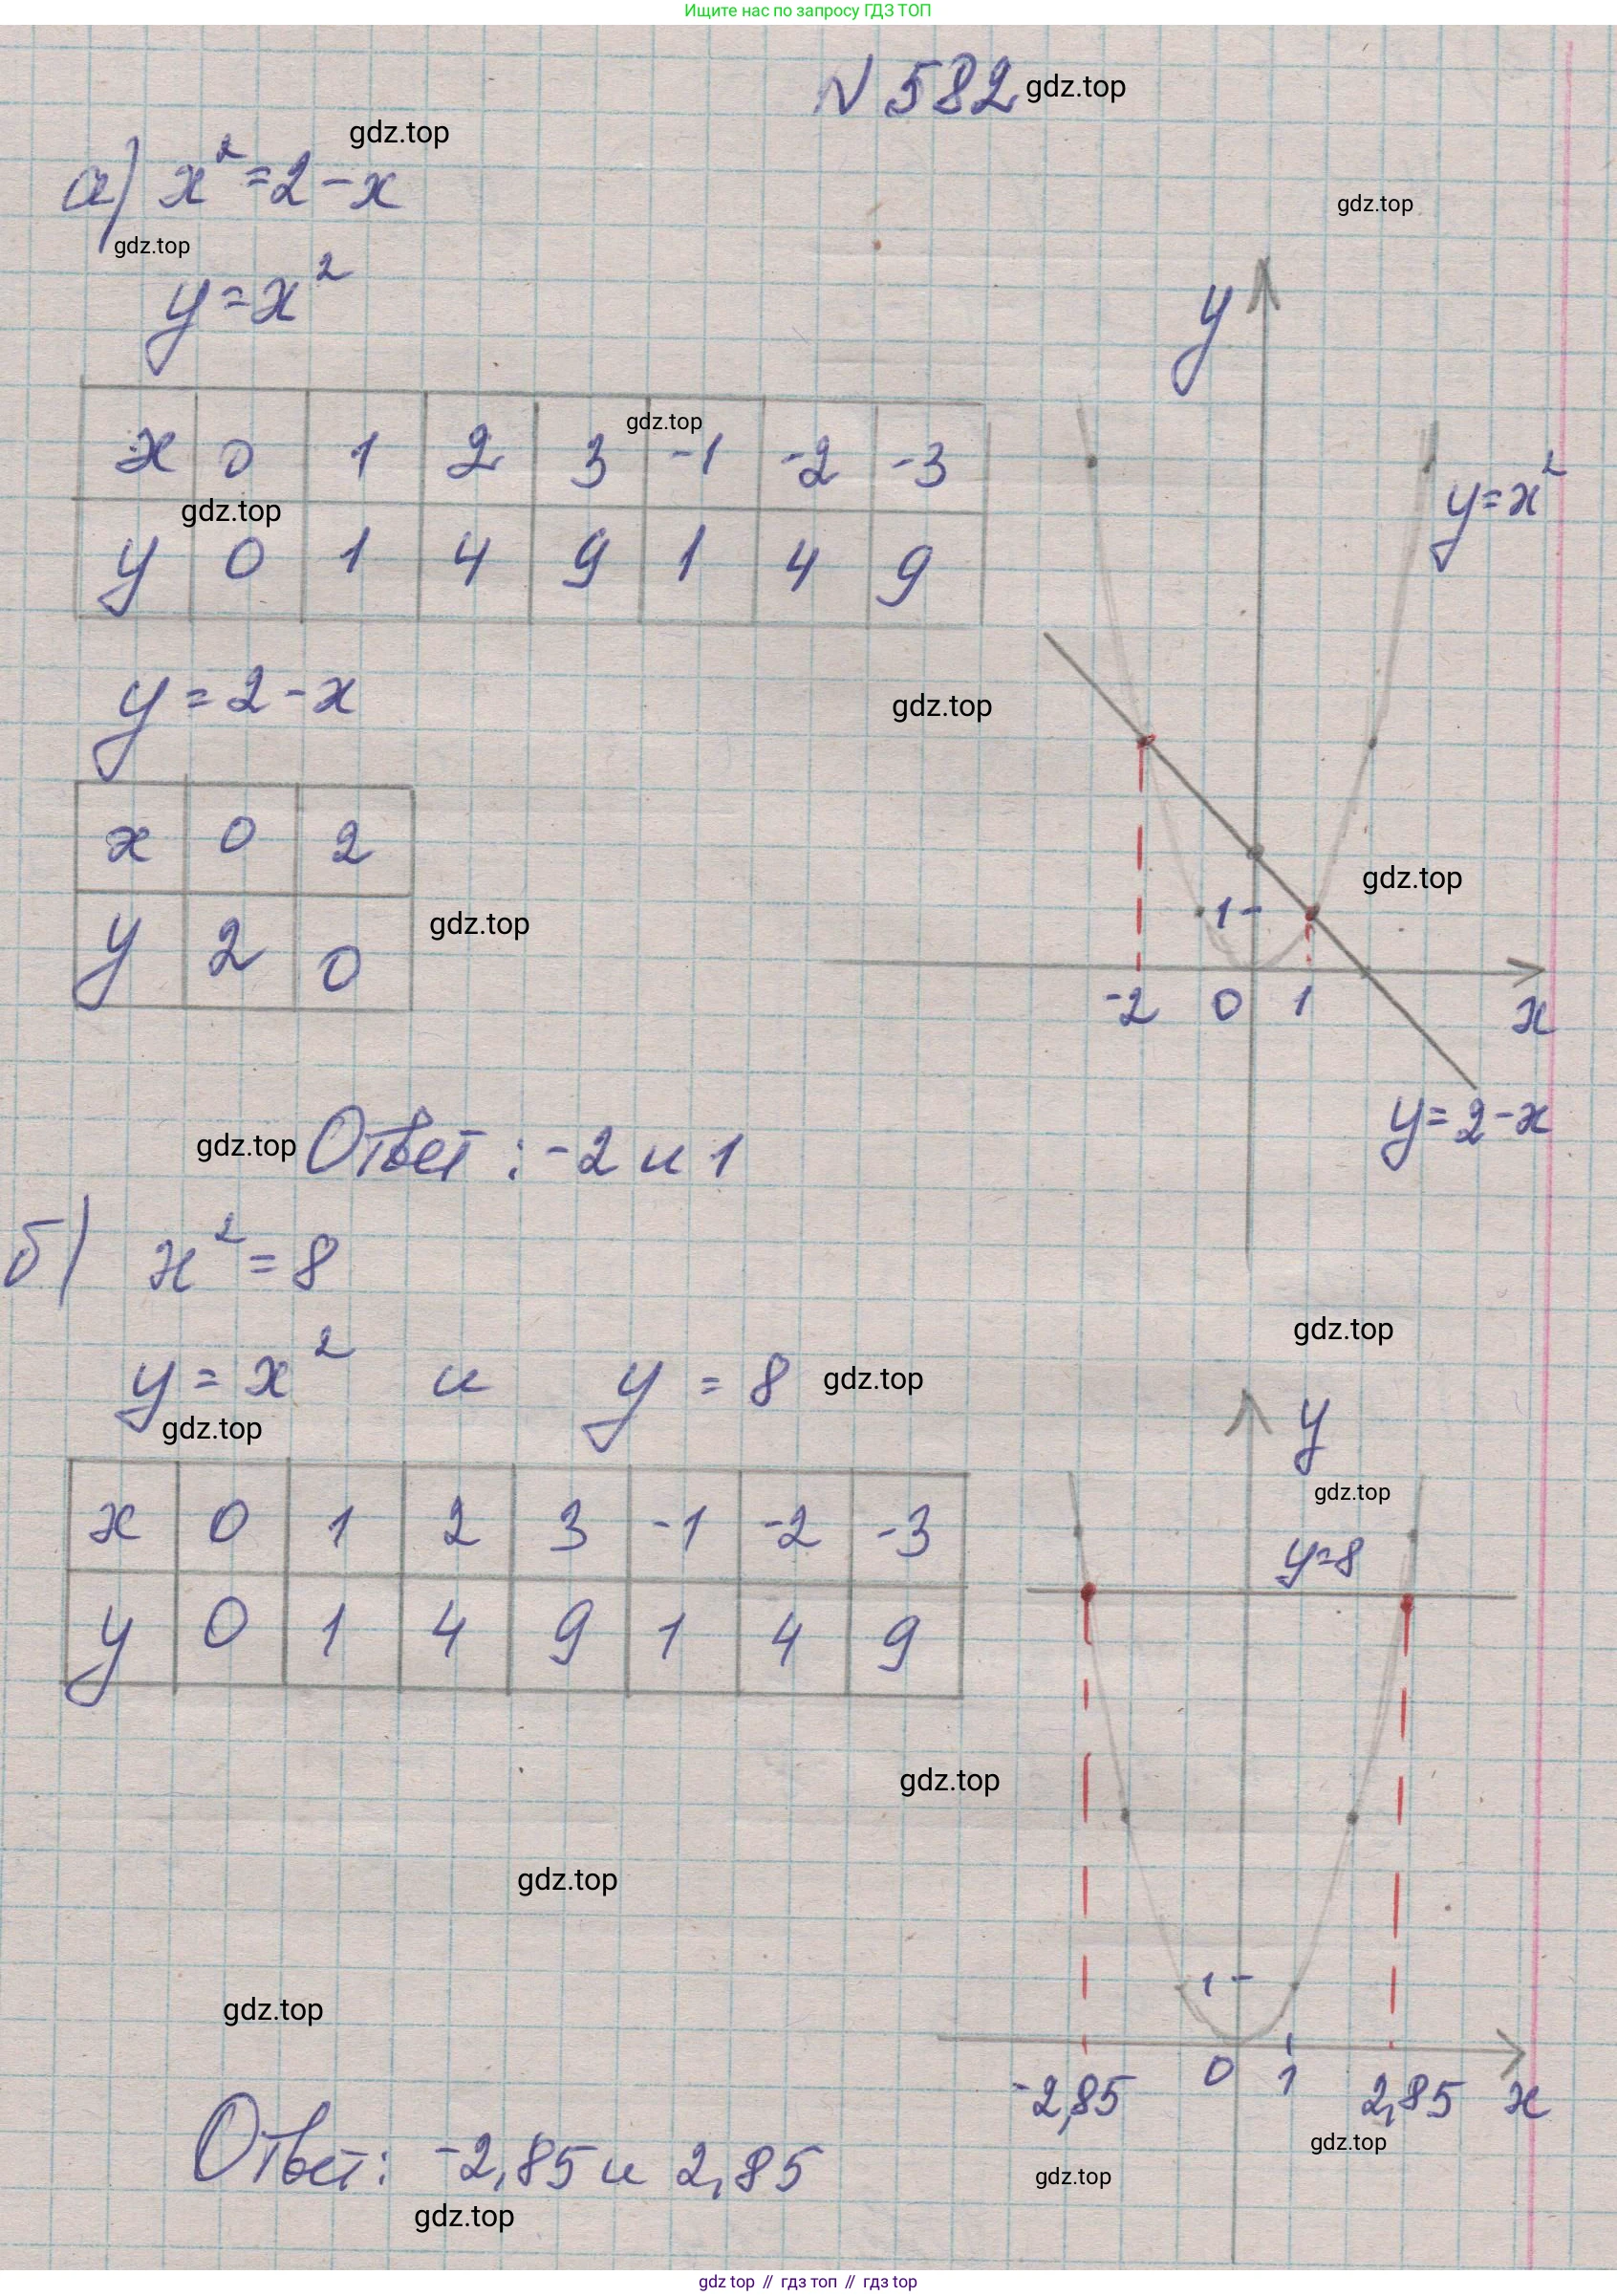 Ищите нас по запросу ГДЗ ТОП
N 582 gdz.top
gdz.top
а) x²=2-x
gdz.top
gdz.top
y=x²
y
gdz.top
x 0 1 2 3 -1 -2 -3
gdz.top
y 0 1 4 9 1 4 9
y=x²
y=2-x
gdz.top
x 0 2
y 2 0
gdz.top
gdz.top
1
-2 0 1 x
y=2-x
gdz.top Ответ: -2 и 1
б) x²=8
gdz.top
y=x² и y=8 gdz.top
gdz.top
y
gdz.top
x 0 1 2 3 -1 -2 -3
y 0 1 4 9 1 4 9
y=8
gdz.top
gdz.top
gdz.top
1
-2,85 0 1 2,85 x
gdz.top
Ответ: -2,85 и 2,85
gdz.top
gdz.top
gdz top // гдз топ // гдз top